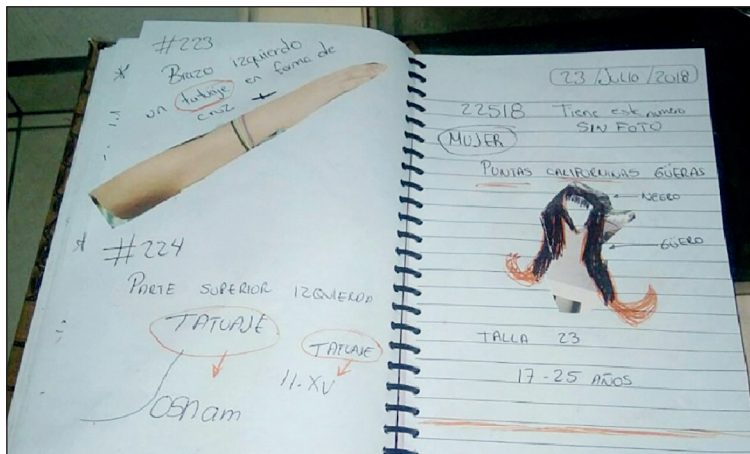 #223
* Brazo izquierdo
un tatuaje en forma de
cruz
#224
PARTE SUPERIOR IZQUIERDO
TATUAJE
TATUAJE
11-XV
osnam
23/JULIO/2018
22518 Tiene este numero
SIN FOTO
MUJER
PUNTAS CALIFORNINAS GÜERAS
NEGRO
GÜERO
TALLA 23
17-25 AÑOS